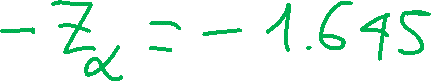 -Z_α = -1.645